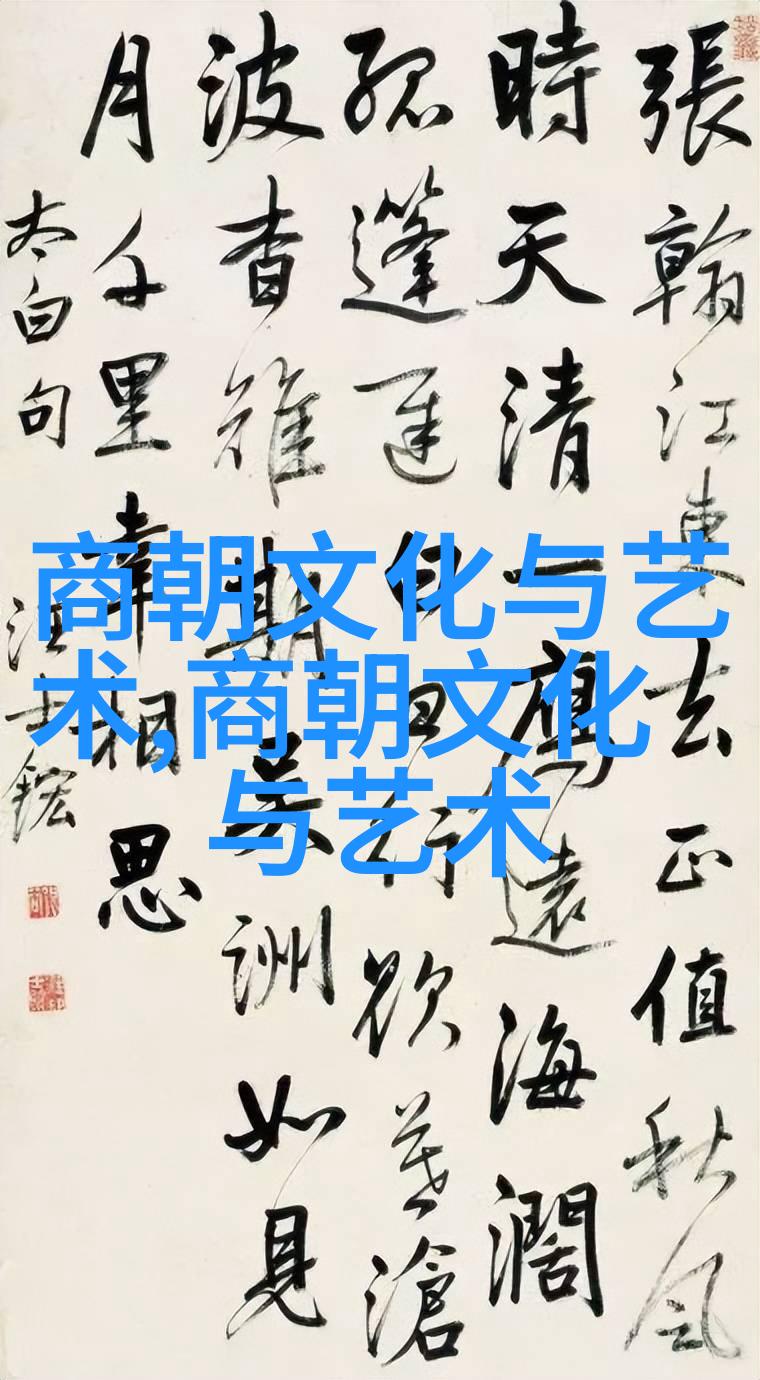 張翰江東去正值秋風
時天清一鴈遠海濶
孤蓬遲白日行欲莫滄
波杳難期吳洲如見
月千里幸相思
太白句
汪士鋐
商朝文化与艺
术,商朝文化
与艺术